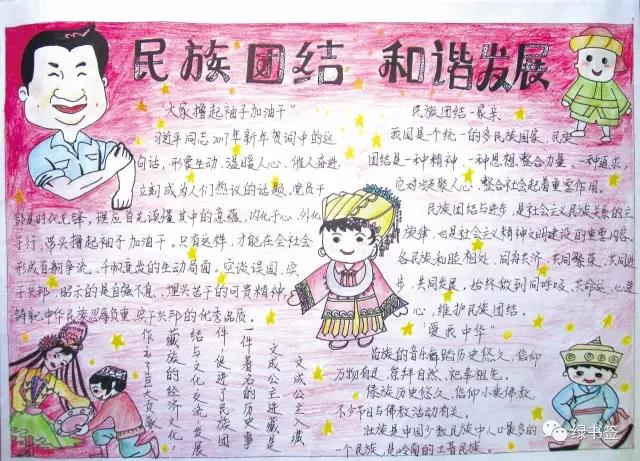 民族团结 和谐发展
“大家撸起袖子加油干”
习近平同志2017年新年贺词中的这
句话，形象生动、温暖人心、催人奋进，
立刻成为人们热议的话题。党员干
部是时代先锋，理应首先读懂其中的意蕴，内化于心、外化
于行，带头撸起袖子加油干。只有这样，才能在全社会
形成百舸争流、千帆竞发的生动局面。空谈误国，实
干兴邦，昭示的是自强不息、埋头苦干的可贵精神，
铸就中华民族忍辱负重、实干兴邦的优秀品质。
文成公主入藏
文成公主进藏是
一件著名的历史事
件，促进了民族团
结与文化交流，发展
藏族的经济文化，
作出了巨大贡献
民族团结一家亲
我国是个统一的多民族国家，民族
团结是一种精神，一种思想，整合力量，一种追求，
它对凝聚人心、整合社会起着重要作用。
民族团结与进步，是社会主义民族关系的主
旋律，也是社会主义精神文明建设的重要内容，
各民族和睦相处，同舟共济，共同繁荣，共同进
步，共同发展，始终做到同呼吸、共命运、心连
心，维护民族团结。
“爱我中华”
苗族的音乐舞蹈历史悠久，信仰
万物有灵，崇拜自然，祀奉祖先。
傣族历史悠久，信仰小乘佛教，
不少节日与佛教活动有关。
壮族是中国少数民族中人口最多的
一个民族，是岭南的土著民族。
绿书签